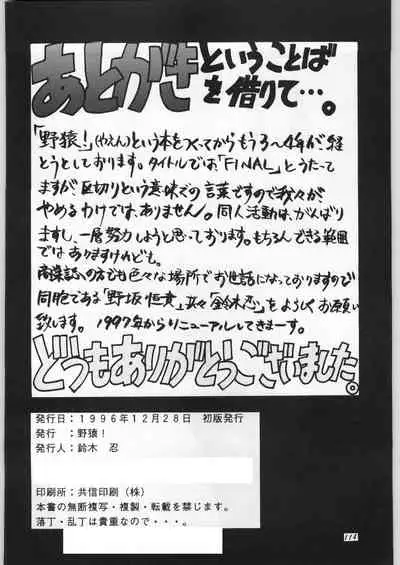 あとがきということば
を借りて…。
「野猿！」(やえん)という本をつくってからもう3〜4年が経
とうとしております。タイトルでは、「FINAL」とうたって
ますが、区切りという意味での言葉ですので我々が
やめるわけでは、ありません。同人活動は、がんばり
ますし、一層努力しようと思っております。もちろんできる範囲
ではありますけれども。
商業誌の方でも色々な場所でお世話になっておりますので
同胞である「野坂恒貴」共々「鈴木忍」をよろしくお願い
致します。 1997年からリニューアルしてきまーす。
どうもありがとうございました。
発行日：1996年12月28日 初版発行
発行 ：野猿！
発行人：鈴木 忍
印刷所：共信印刷（株）
本書の無断複写・複製・転載を禁じます。
落丁・乱丁は貴重なので・・・。